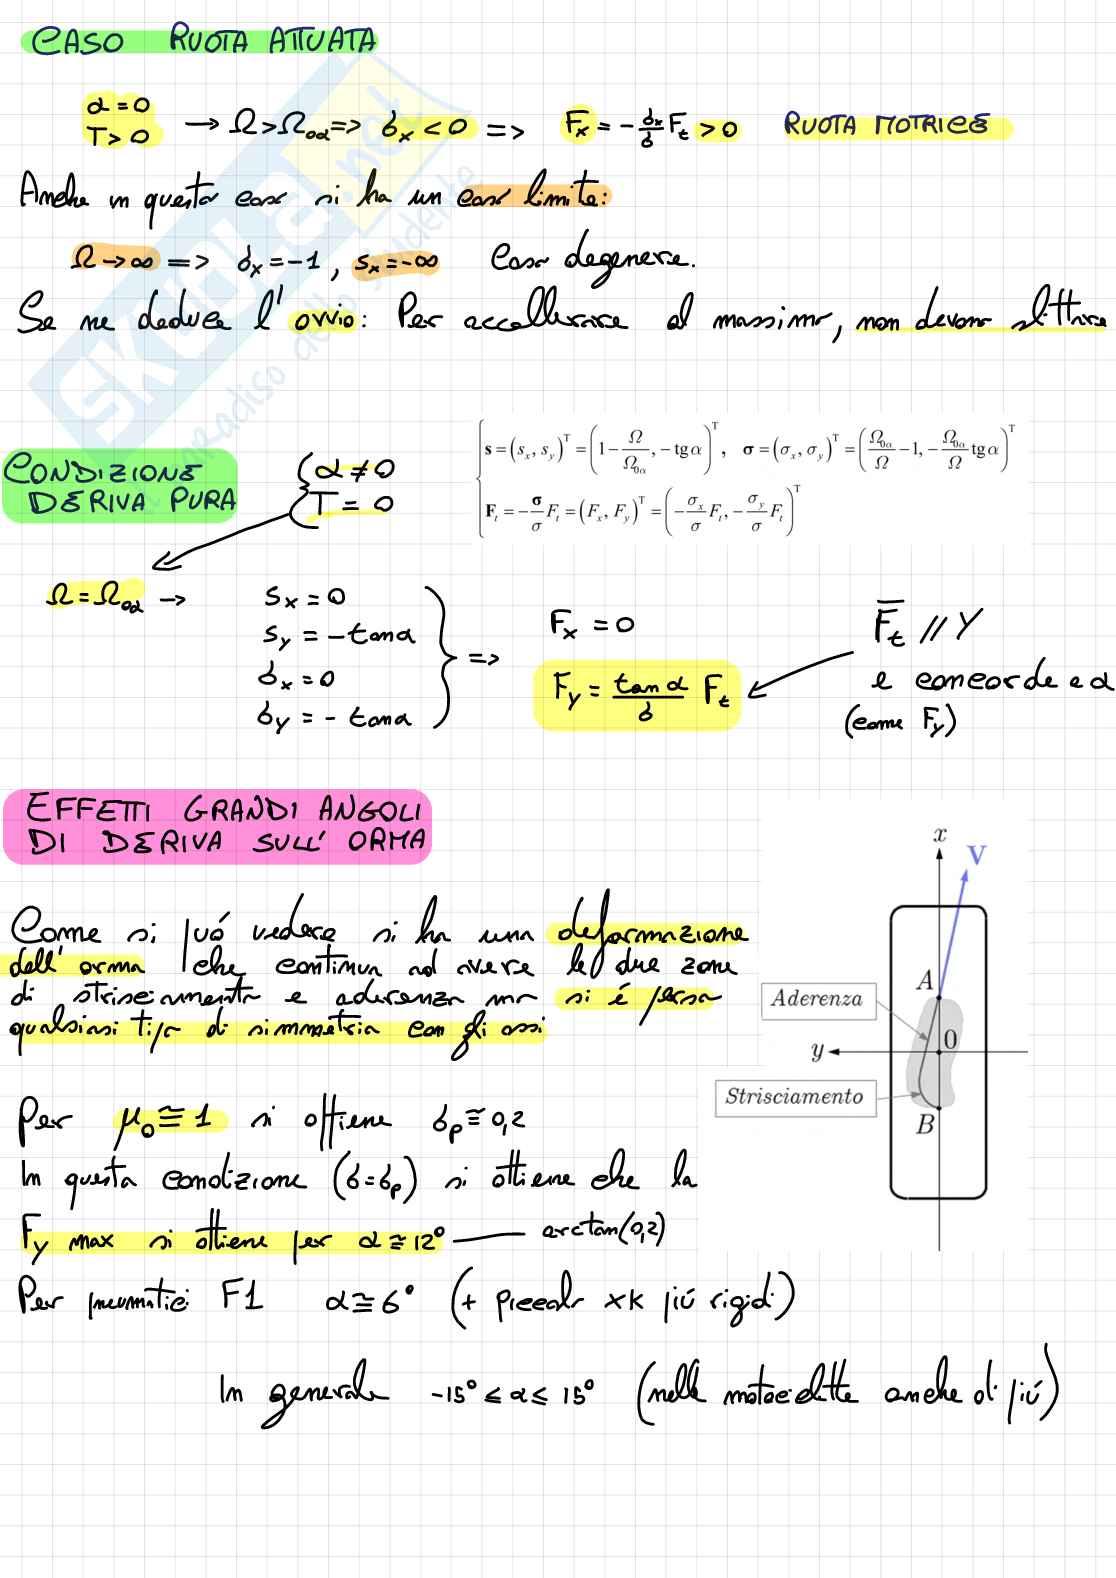 CASO RUOTA ATTUATA
α = 0
T > 0
→ Ω > Ω₀α => σₓ < 0 => Fₓ = - σₓ/σ Fₜ > 0 RUOTA MOTRICE
Anche in questo caso si ha un caso limite:
Ω → ∞ => σₓ = -1 , sₓ = -∞ Caso degenere.
Se ne deduce l' ovvio: Per accellerare al massimo, non devono slittare
CONDIZIONE
DERIVA PURA
α ≠ 0
T = 0
s = (sₓ, s_y)ᵀ = (1 - Ω/Ω₀α, - tg α)ᵀ, σ = (σₓ, σ_y)ᵀ = (Ω₀α/Ω - 1, - Ω₀α/Ω tg α)ᵀ
Fₜ = - σ/σ Fₜ = (Fₓ, F_y)ᵀ = (- σₓ/σ Fₜ, - σ_y/σ Fₜ)ᵀ
Ω = Ω₀α →
sₓ = 0
s_y = - tanα
σₓ = 0
σ_y = - tanα
=>
Fₓ = 0
F_y = tan α/σ Fₜ
F̅ₜ // Y
e concorde a α
(come F_y)
EFFETTI GRANDI ANGOLI
DI DERIVA SULL' ORMA
Come si puó vedere si ha una deformazione
dell' orma che continua ad avere le due zone
di strisciamento e aderenza ma si é persa
qualsiasi tipo di simmetria con gli assi
x
V
A
Aderenza
0
y
Strisciamento
B
Per μ₀ ≅ 1 si ottiene σₚ ≅ 0,2
In questa condizione (σ=σₚ) si ottiene che la
F_y max si ottiene per α ≅ 12° — arctan(0,2)
Per pneumatici F1 α ≅ 6° (+ piccolo xk piú rigidi)
In generale -15° ≤ α ≤ 15° (nelle motociclette anche di piú)
SKUOLA.net
paradiso dello studente